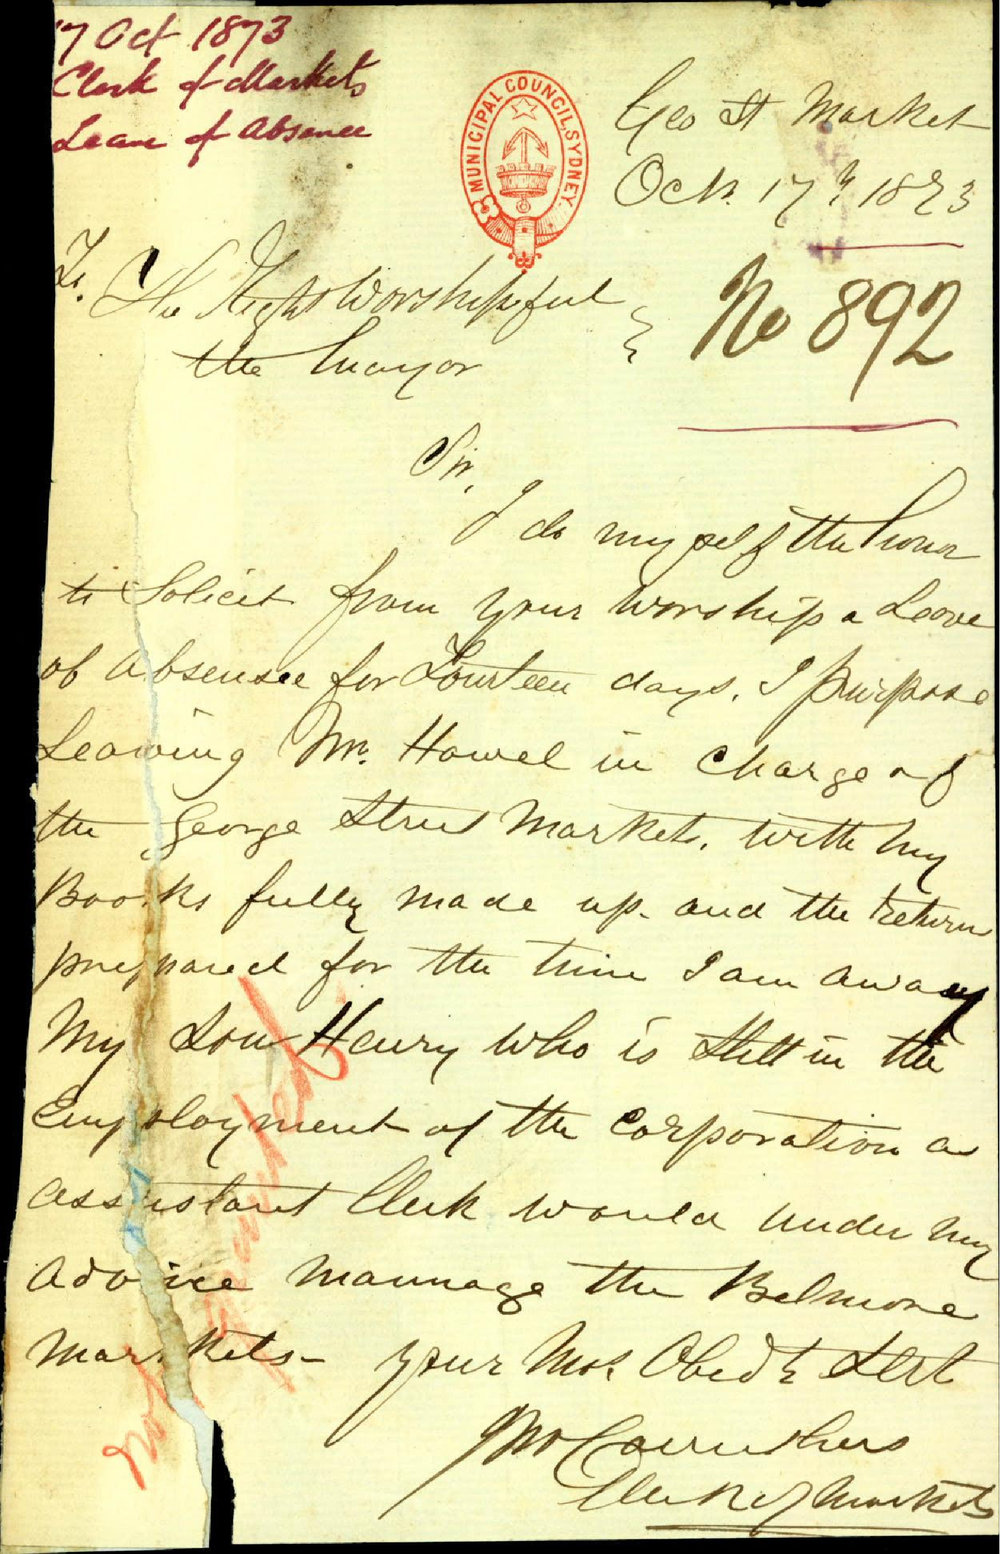 17 Oct 1873
Clerk of Markets
Leave of Absence
MUNICIPAL COUNCIL, SYDNEY.
Geo St Market
Octr. 17th 1873
To. The Right Worshipful
the Mayor
No 892
Sir,
I do myself the honor
to Solicit from your worship a Leave
of absensee for Fourteen days. I purpose
Leaving Mr. Howel in charge of
the George Street Markets. with my
Books fully made up. and the return
prepared for the time I am away
My Son Henry who is still in the
Employment of the Corporation as
assistant Clerk would under my
advice mannage the Belmore
Markets - your Mos Obedt Sert
Jno Carruthers
Clerk of Markets
not granted